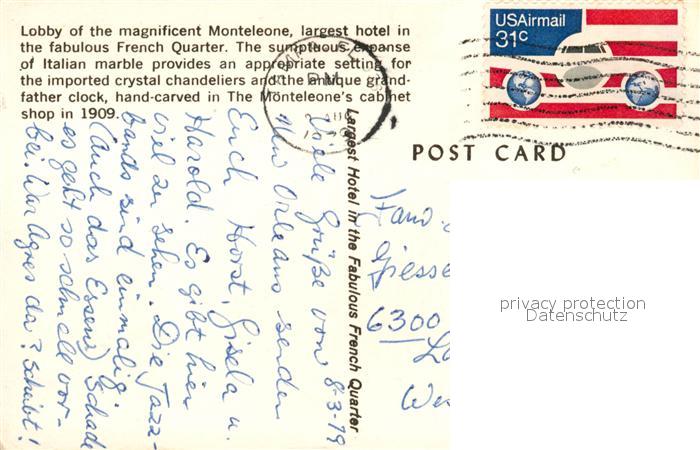 Lobby of the magnificent Monteleone, largest hotel in
the fabulous French Quarter. The sumptuous expanse
of Italian marble provides an appropriate setting for
the imported crystal chandeliers and the antique grand-
father clock, hand-carved in The Monteleone's cabinet
shop in 1909.
USAirmail
31c
PM
POST CARD
Largest Hotel in the Fabulous French Quarter
8-3-79
Viele Grüße von
New Orleans senden
Euch Horst, Gisela u.
Harold. Es gibt hier
viel zu sehen. Die Jazz-
bands sind einmalig.
(Auch das Essen) Schade
es geht so schnell vor-
bei. War Agnes da? Schreibt!
Fam.
Giesse
6300
We
privacy protection
Datenschutz